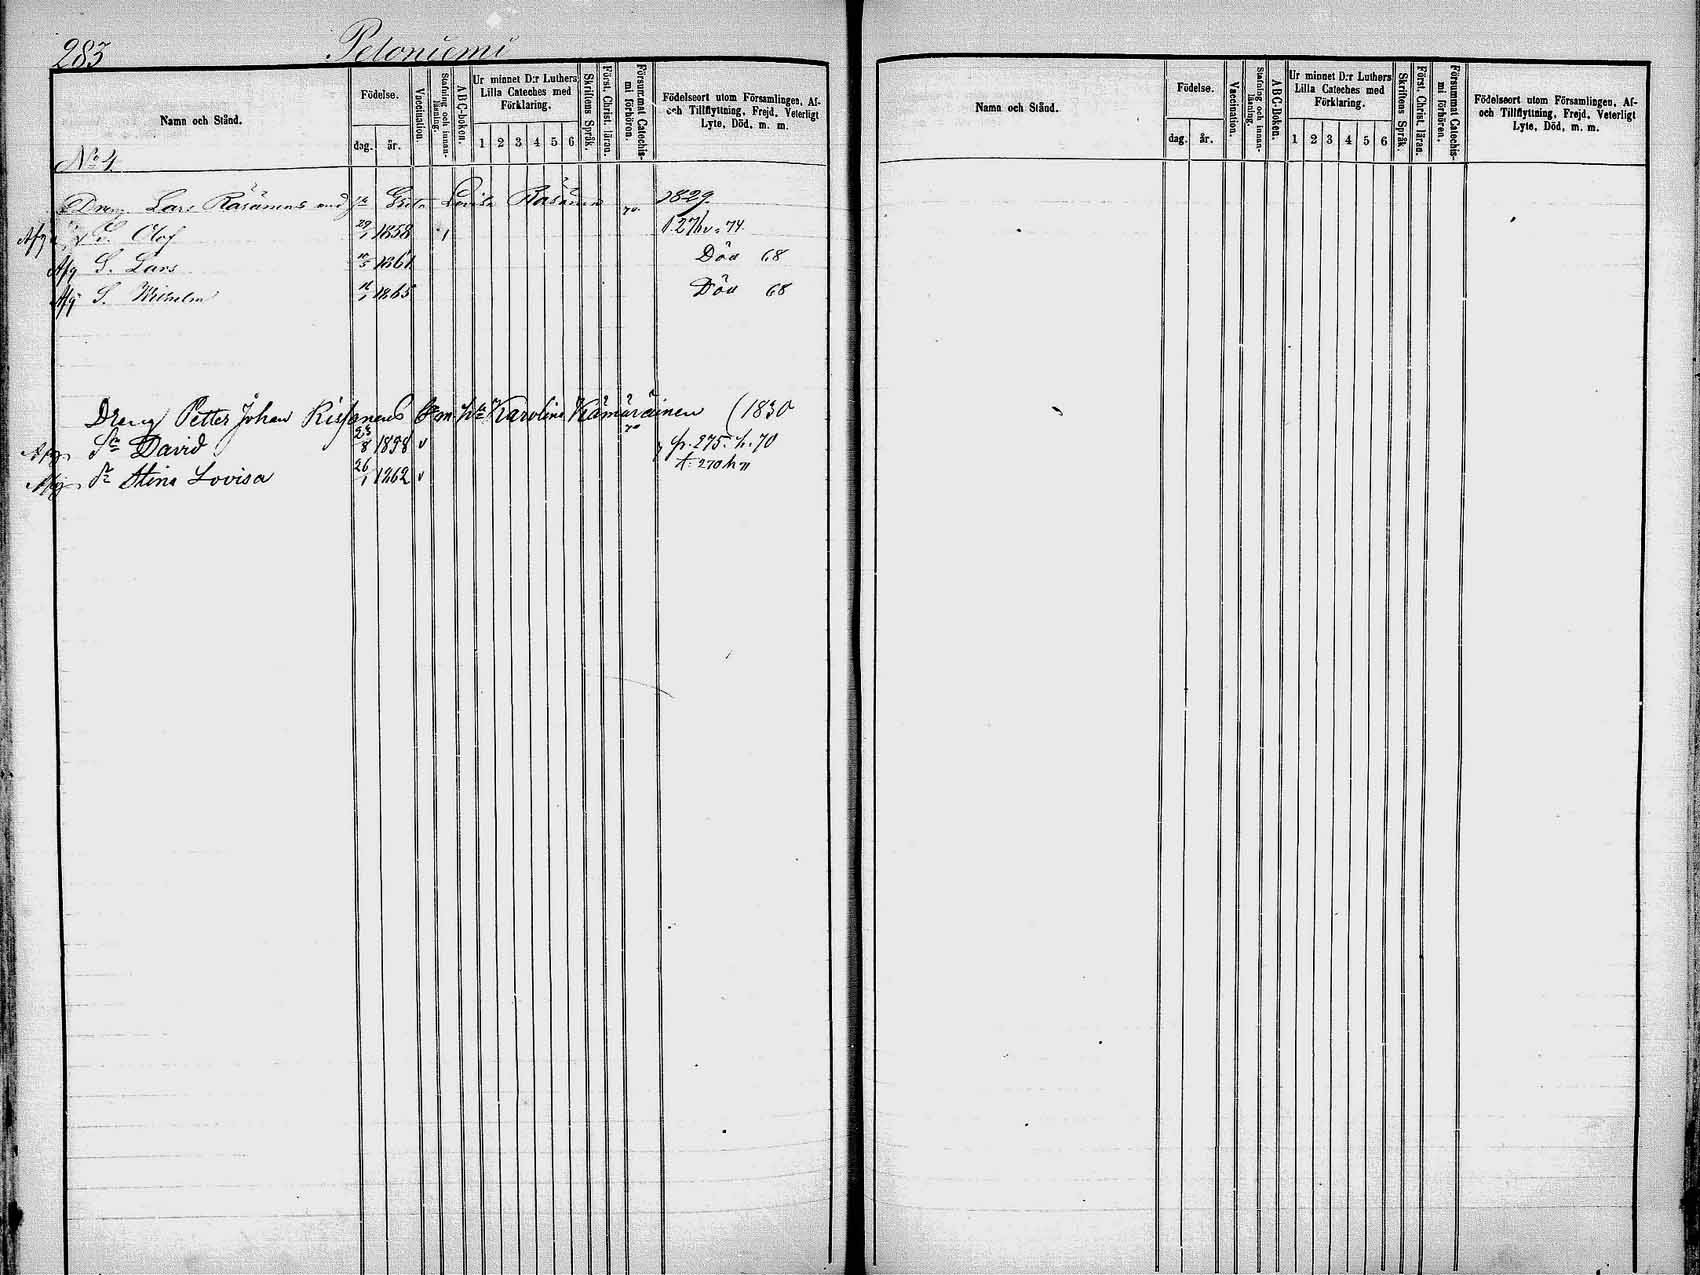 283 Peloniemi
Namn och Stånd.
Födelse.
dag. år.
Vaccination.
Stafning och innanläsning.
ABC-boken.
Ur minnet D:r Luthers Lilla Cateches med Förklaring.
1 2 3 4 5 6
Skriftens Språk.
Först. Christ. läran.
Försummat Catechismi förhören.
Födelseort utom Församlingen, Af- och Tillflyttning, Frejd, Veterligt Lyte, Död, m. m.
No 4
Dreng Lars Räsänens med Greta Lovisa Räsänen 70 1829
S. Olof 29/1 1858 74
Afg S. Lars 1861 Död 68
Afg S. Wilhelm 1865 Död 68
Dreng Petter Johan Rissanens Karolina Kämäräinen (1830
70
Afg Sn David 23/8 1858 v p. 275. h. 70
Afg Stina Lovisa 26/1 1862 v 270 h 71
Namn och Stånd.
Födelse.
dag. år.
Vaccination.
Stafning och innanläsning.
ABC-boken.
Ur minnet D:r Luthers Lilla Cateches med Förklaring.
1 2 3 4 5 6
Skriftens Språk.
Först. Christ. läran.
Försummat Catechismi förhören.
Födelseort utom Församlingen, Af- och Tillflyttning, Frejd, Veterligt Lyte, Död, m. m.